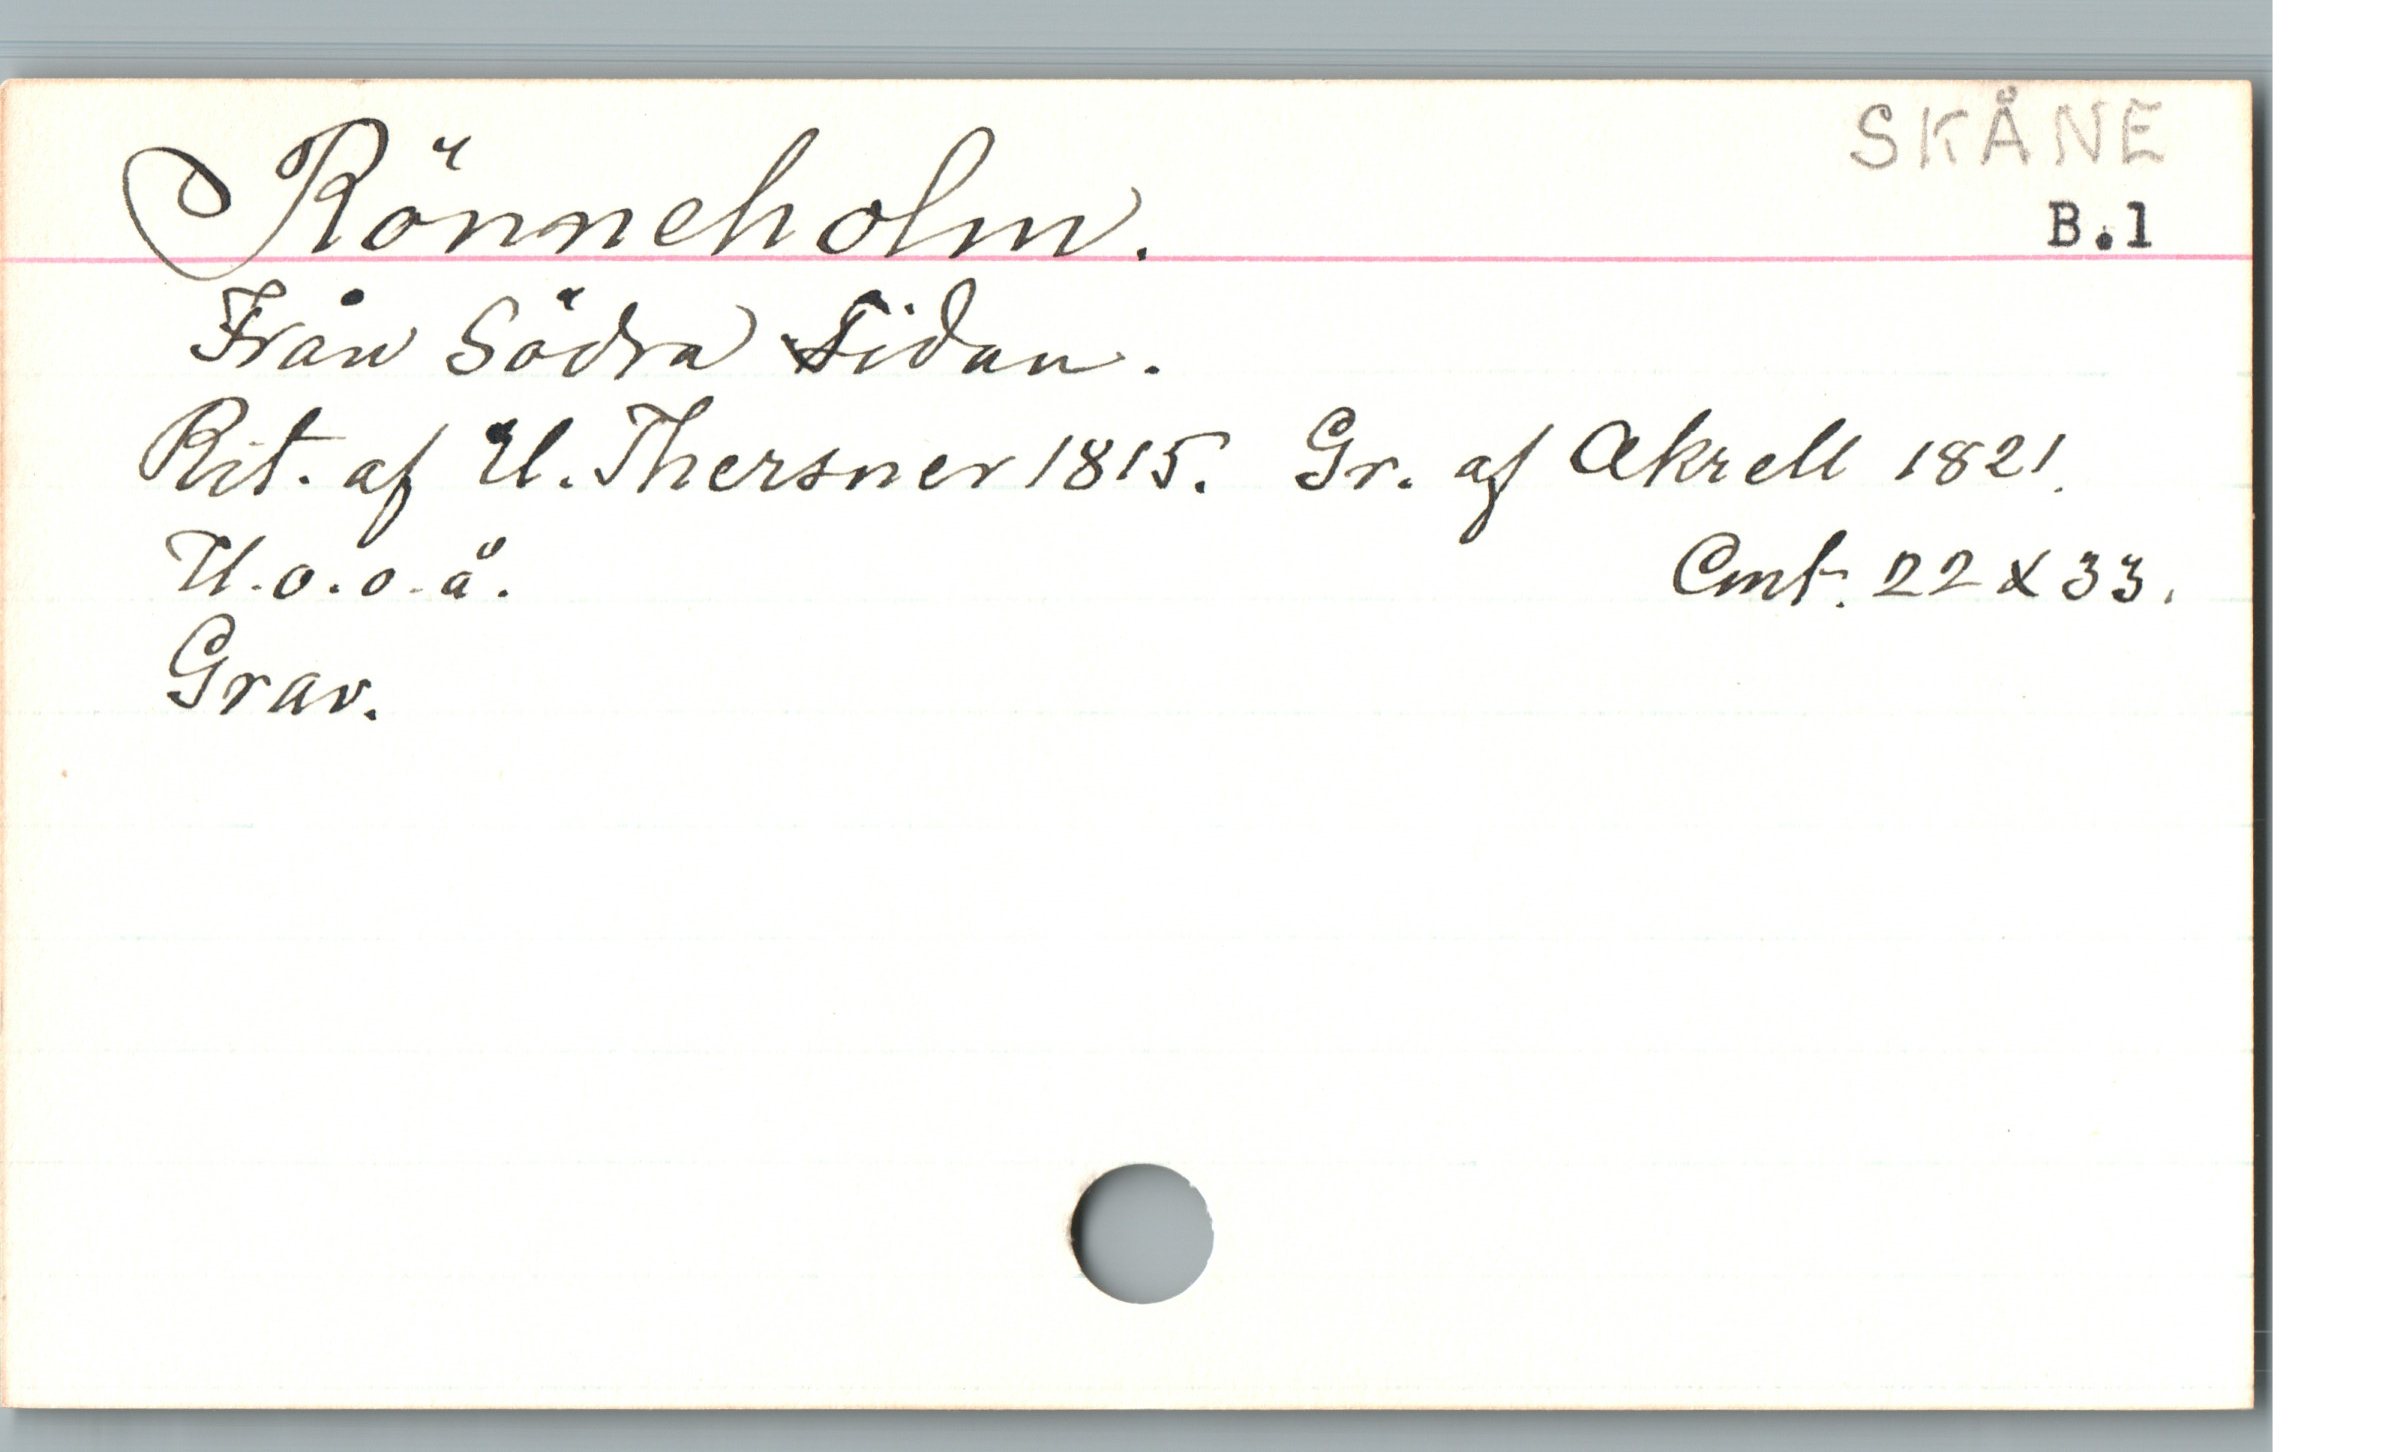 SKÅNE
Rönneholm.
B.1
Från Södra Sidan.
Rit. af U. Thersner 1815. Gr. af Akrell 1821.
U.o.o.å. Cmt. 22 x 33.
Grav.